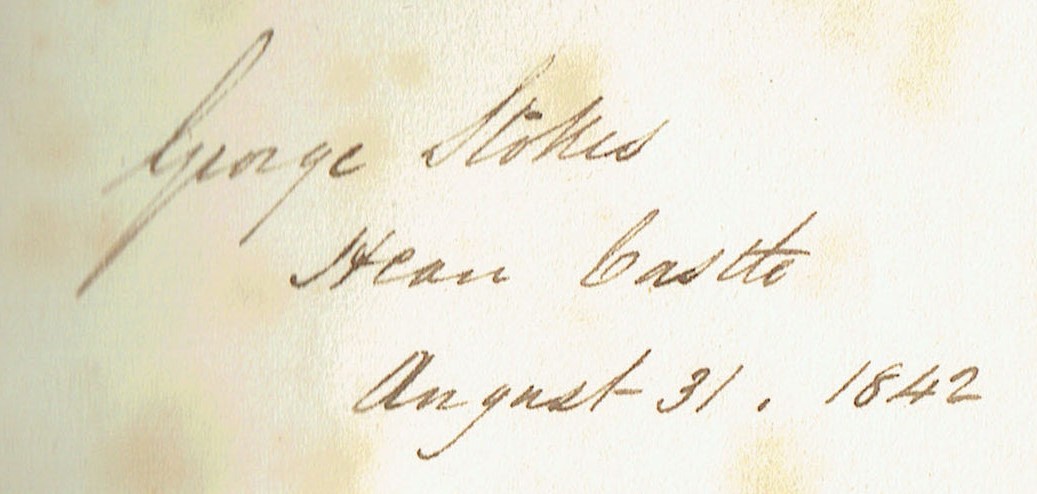 George Stokes
Hean Castle
August 31. 1842